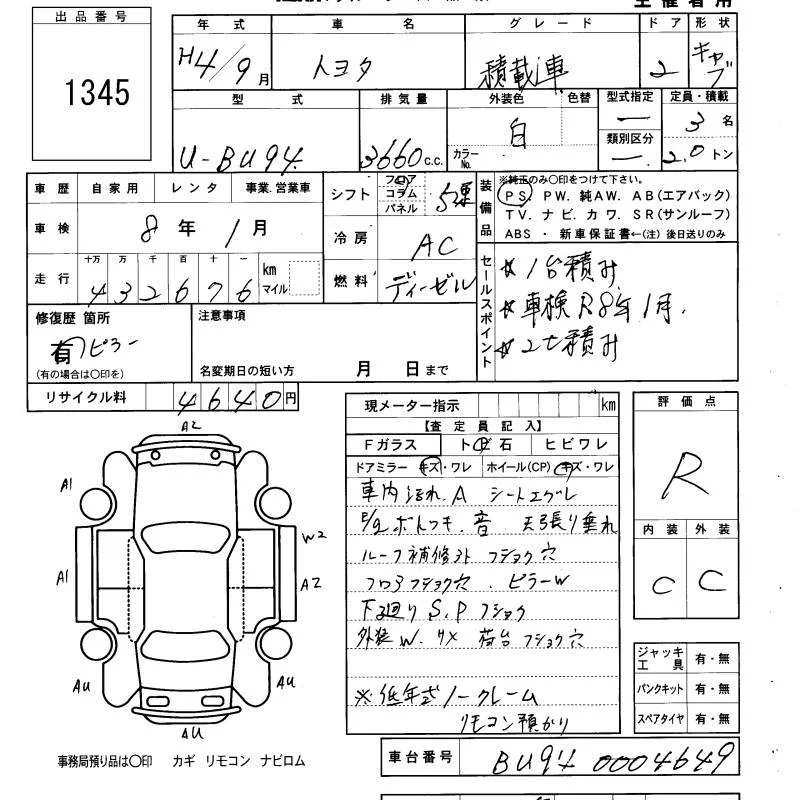 出品番号
1345
年式 車名 グレード ドア 形状
H4/9月 トヨタ 積載車 2 キャブ
型式 排気量 外装色 色替 型式指定 定員・積載
U-BU94 3660c.c. カラーNo. 白 ー 3名
類別区分
ー 2.0トン
車歴 自家用 レンタ 事業.営業車
車検 8年1月
走行 十万 万 千 百 十 一
432676 km マイル
シフト フロア コラム パネル 5速
冷房 AC
燃料 ディーゼル
装備品
※純正のみ〇印をつけて下さい。
PS. PW. 純AW. AB(エアバック)
TV. ナビ. カワ. SR(サンルーフ)
ABS ・ 新車保証書←(注) 後日送りのみ
セールスポイント
☆1台積み
☆車検R8年1月.
☆2t積み
修復歴 箇所
有 ピラー
(有の場合は〇印を)
注意事項
名変期日の短い方 月 日まで
リサイクル料 4640円
現メーター指示 km
【査定員記入】
Fガラス トビ石 ヒビワレ
ドアミラー キズ・ワレ ホイール(CP) キズ・ワレ
車内汚れ.A シートエグレ
音 天張り垂れ
ルーフ補修跡 フショク穴
フロアフショク穴 . ピラーW
下廻りS.P フショク
外装W. サメ 荷台フショク穴
※低年式ノークレーム
リモコン預かり
評価点
R
内装 外装
C C
ジャッキ工具 有・無
パンクキット 有・無
スペアタイヤ 有・無
A2
A1
W2
A1
A2
AU
AU
AU
事務局預り品は〇印 カギ リモコン ナビロム
車台番号 BU94 0004649